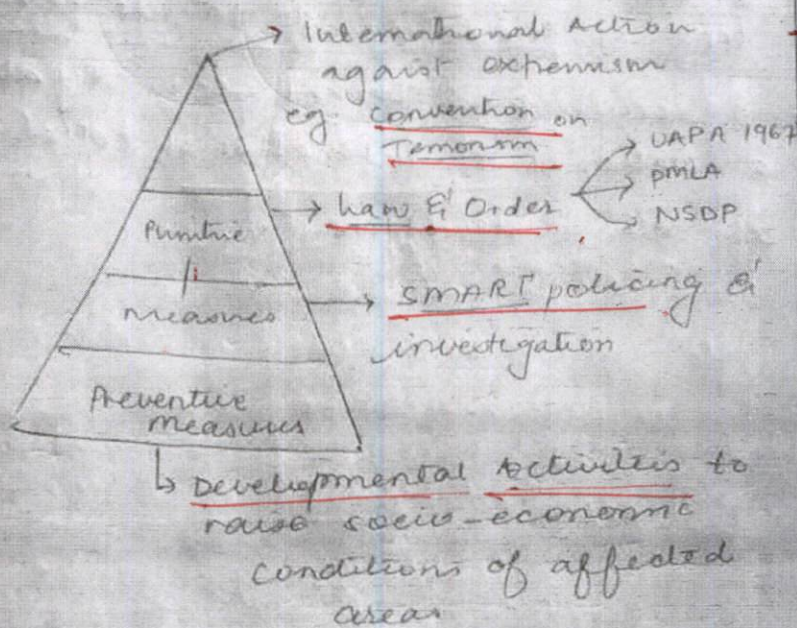 International Action
against extremism
eg. Convention on
Terrorism
UAPA 1967
PMLA
NSDP
Law & Order
Punitive
measures
SMART policing &
investigation
Preventive
measures
Developmental Activities to
raise socio-economic
conditions of affected
areas